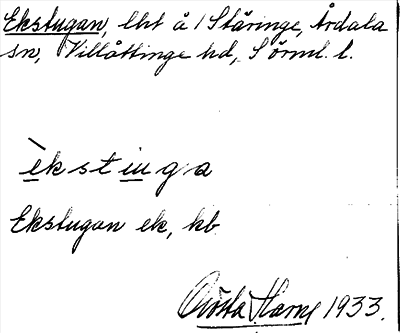 Ekstugan, lht å / Stäringe, Årdala
sn, Villåttinge hd, Sörml. l.
èkstuga
Ekstugan ek, kb.
Gösta Harne 1933.